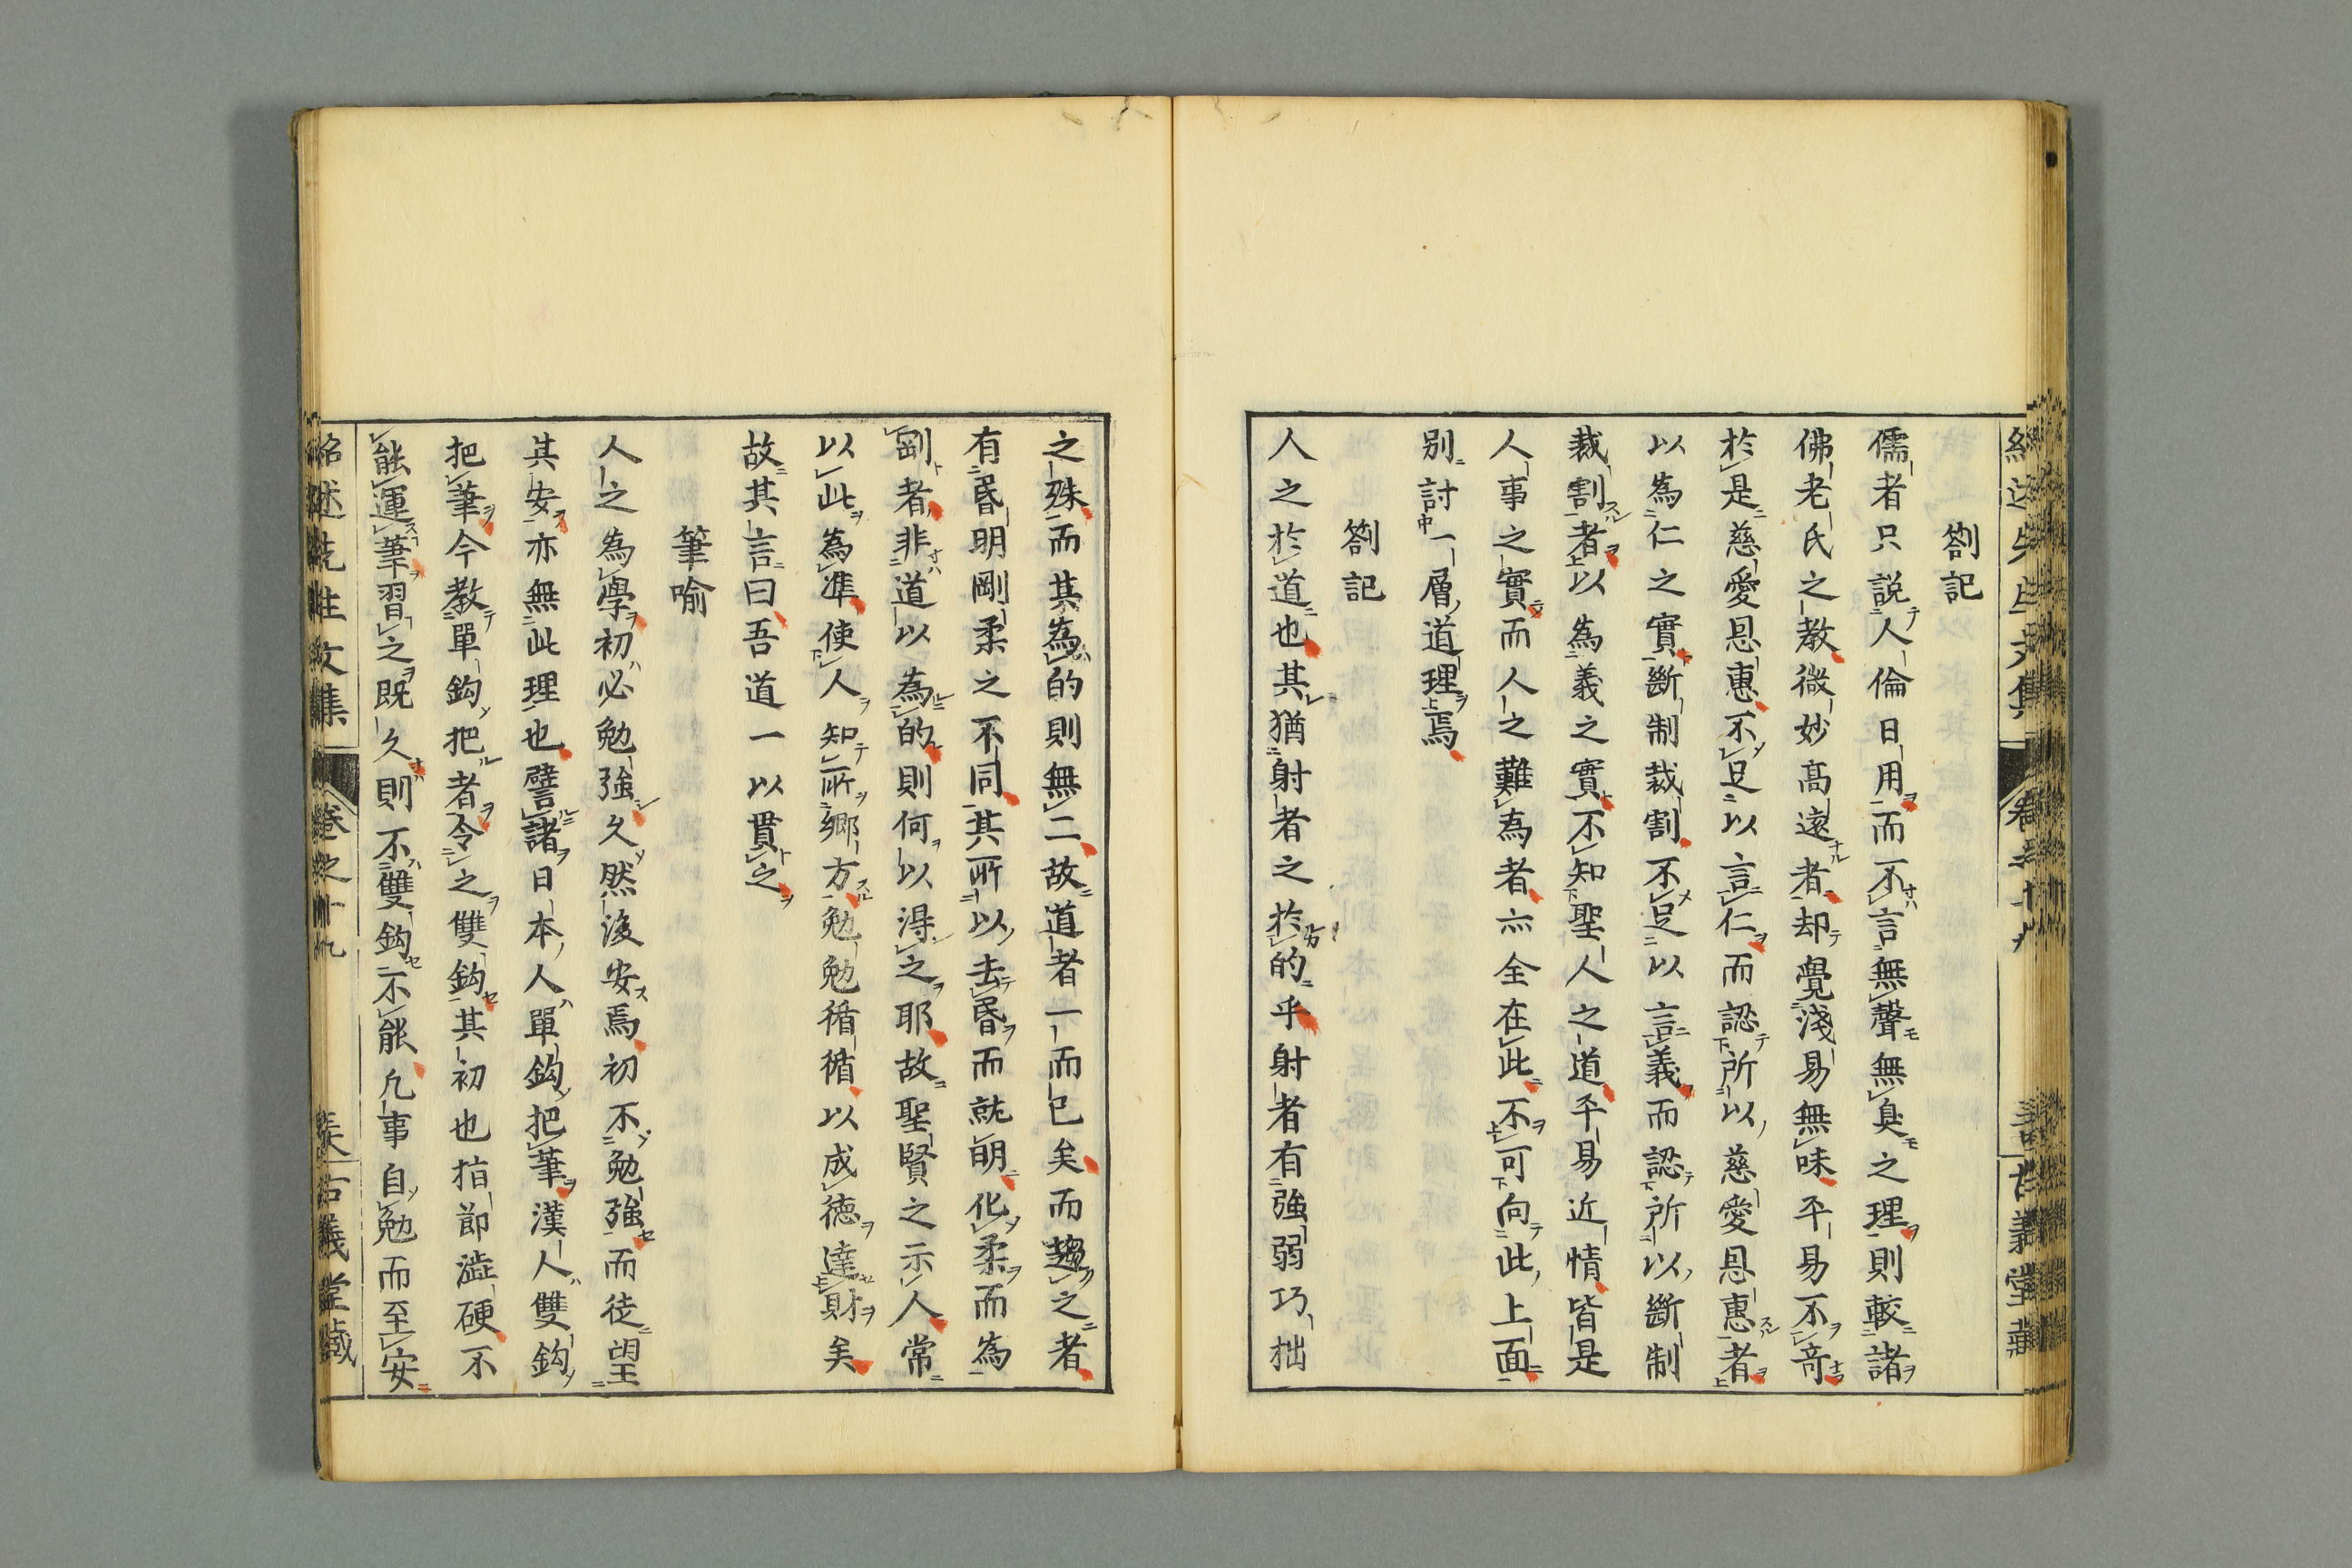 劄記
儒者只説人倫日用而不言無聲無臭之理則較諸
佛老氏之教微妙高遠者却覺淺易無味平易不奇
於是慈愛恩惠不足以言仁而認所以慈愛恩惠者
以為仁之實斷制裁割不足以言義而認所以斷制
裁割者以為義之實不知聖人之道平易近情皆是
人事之實而人之難為者亦全在此不可向此上面
别討一層道理焉
劄記
人之於道也其猶射者之於的乎射者有強弱巧拙
之殊而其為的則無二故道者一而已矣而趨之者
有昏明剛柔之不同其所以去昏而就明化柔而為
剛者非道以為的則何以得之耶故聖賢之示人常
以此為準使人知所郷方勉勉循循以成徳達財矣
故其言曰吾道一以貫之
筆喻
人之為學初必勉強久然後安焉初不勉強而徒望
其安亦無此理也譬諸日本人單鈎把筆漢人雙鈎
把筆今教單鈎把者令之雙鈎其初也指節澁硬不
能運筆習之既久則不雙鈎不能凡事自勉而至安
紹述先生文集 卷之十九 古義堂藏